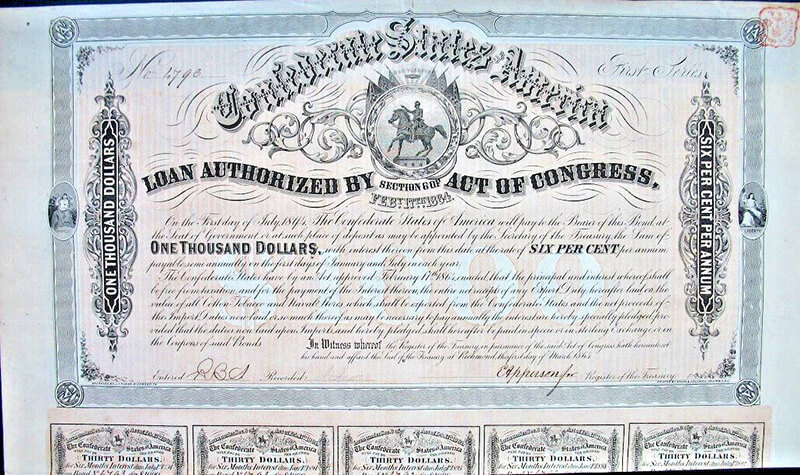 No 2793
First Series
Confederate States of America
ONE THOUSAND DOLLARS
SIX PER CENT PER ANNUM
LIBERTY
LOAN AUTHORIZED BY SECTION 6 OF ACT OF CONGRESS,
FEBY. 17TH 1864.
On the First day of July, 1894, The Confederate States of America will pay to the Bearer of this Bond, at
the Seat of Government or at such place of deposit as may be appointed by the Secretary of the Treasury, the Sum of
ONE THOUSAND DOLLARS, with interest thereon from this date, at the rate of SIX PER CENT per annum
payable semi annually on the first days of January and July in each year.
The Confederate States have by an Act approved February 17th 1864, enacted, that the principal and interest whereof shall
be free from taxation, and for the payment of the Interest thereon, the entire net receipts of any Export Duty hereafter laid on the
value of all Cotton, Tobacco and Naval Stores, which shall be exported from the Confederate States and the net proceeds of
the Import Duties now laid or so much thereof as may be necessary to pay annually the interest are hereby specially pledged: pro-
vided that the duties now laid upon Imports and hereby pledged shall hereafter be paid in specie or in sterling Exchange, or in
the Coupons of said Bonds.
In Witness whereof the Register of the Treasury, in pursuance of the said Act of Congress, hath hereunto set
his hand and affixed the Seal of the Treasury at Richmond, this first day of March 1864.
Entered
Recorded
Register of the Treasury.
The Confederate States of America
The Confederate States of America
The Confederate States of America
The Confederate States of America
The Confederate States of America
THIRTY DOLLARS
THIRTY DOLLARS
THIRTY DOLLARS
THIRTY DOLLARS
THIRTY DOLLARS
for Six Months Interest due
for Six Months Interest due
for Six Months Interest due
for Six Months Interest due
for Six Months Interest due